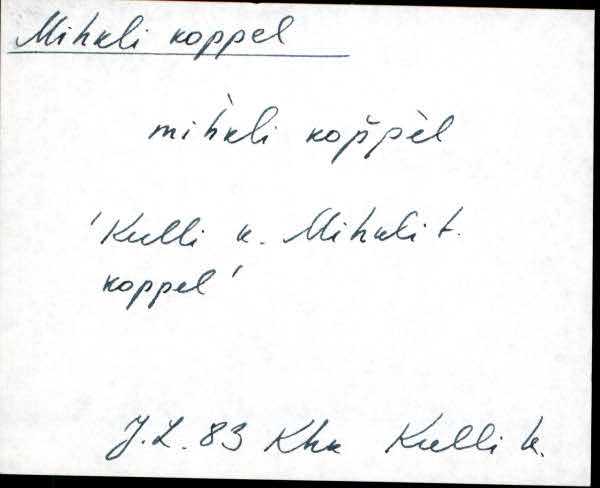 Mihkli koppel
mìhkli kop̆pèl
'Kulli k. Mihkli t.
koppel'
J.L. 83 Khk Kulli k.